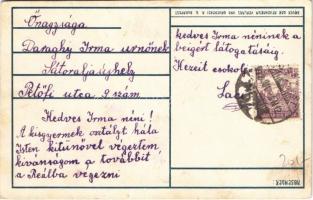 Őnagysága
Daraghy Irma urnőnek
Sátoraljaújhely
Petőfi utca 9 szám
Kedves Irma néni!
A kisgyermek osztályt hála
Isten kitünővel végeztem,
kivánságom a továbbit
a Reálba végezni
kedves Irma néninek a
beigért látogatásáig.
Kezeit csokolja
ABSENDER: